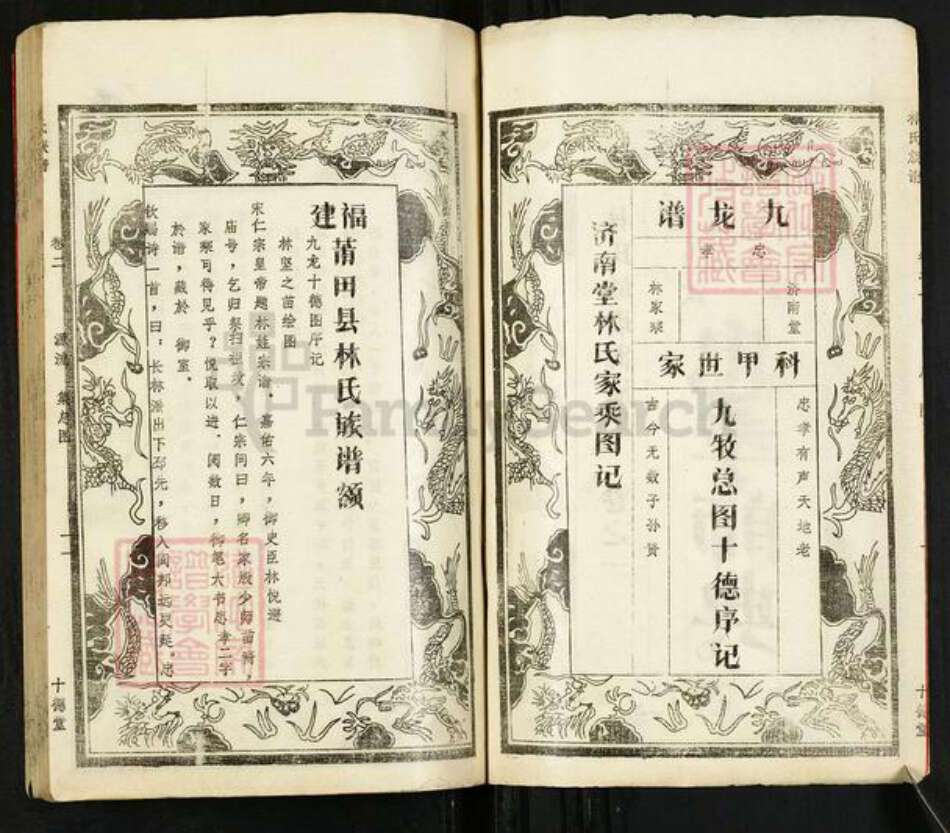 九龙谱
忠孝
济南堂
林家乘
科甲世家
忠孝有声天地老
九牧总图十德序记
古今无数子孙贤
济南堂林氏家乘图记
十德堂
福建莆田县林氏族谱额
九龙十德图序记
林坚之苗绘图
宋仁宗皇帝题林姓宗谕。嘉佑六年，御史臣林悦避
庙号，乞归祭扫祖坟，仁宗问曰，卿名家最少
家乘可得见乎？悦取以进。阅数日，御笔大书忠孝二字
於谱，藏於 御室。
钦赐诗一首，曰：长林派出下邳先，移入闽邦远更延。忠
卷二
总图
十一
十德堂
FamilySearch